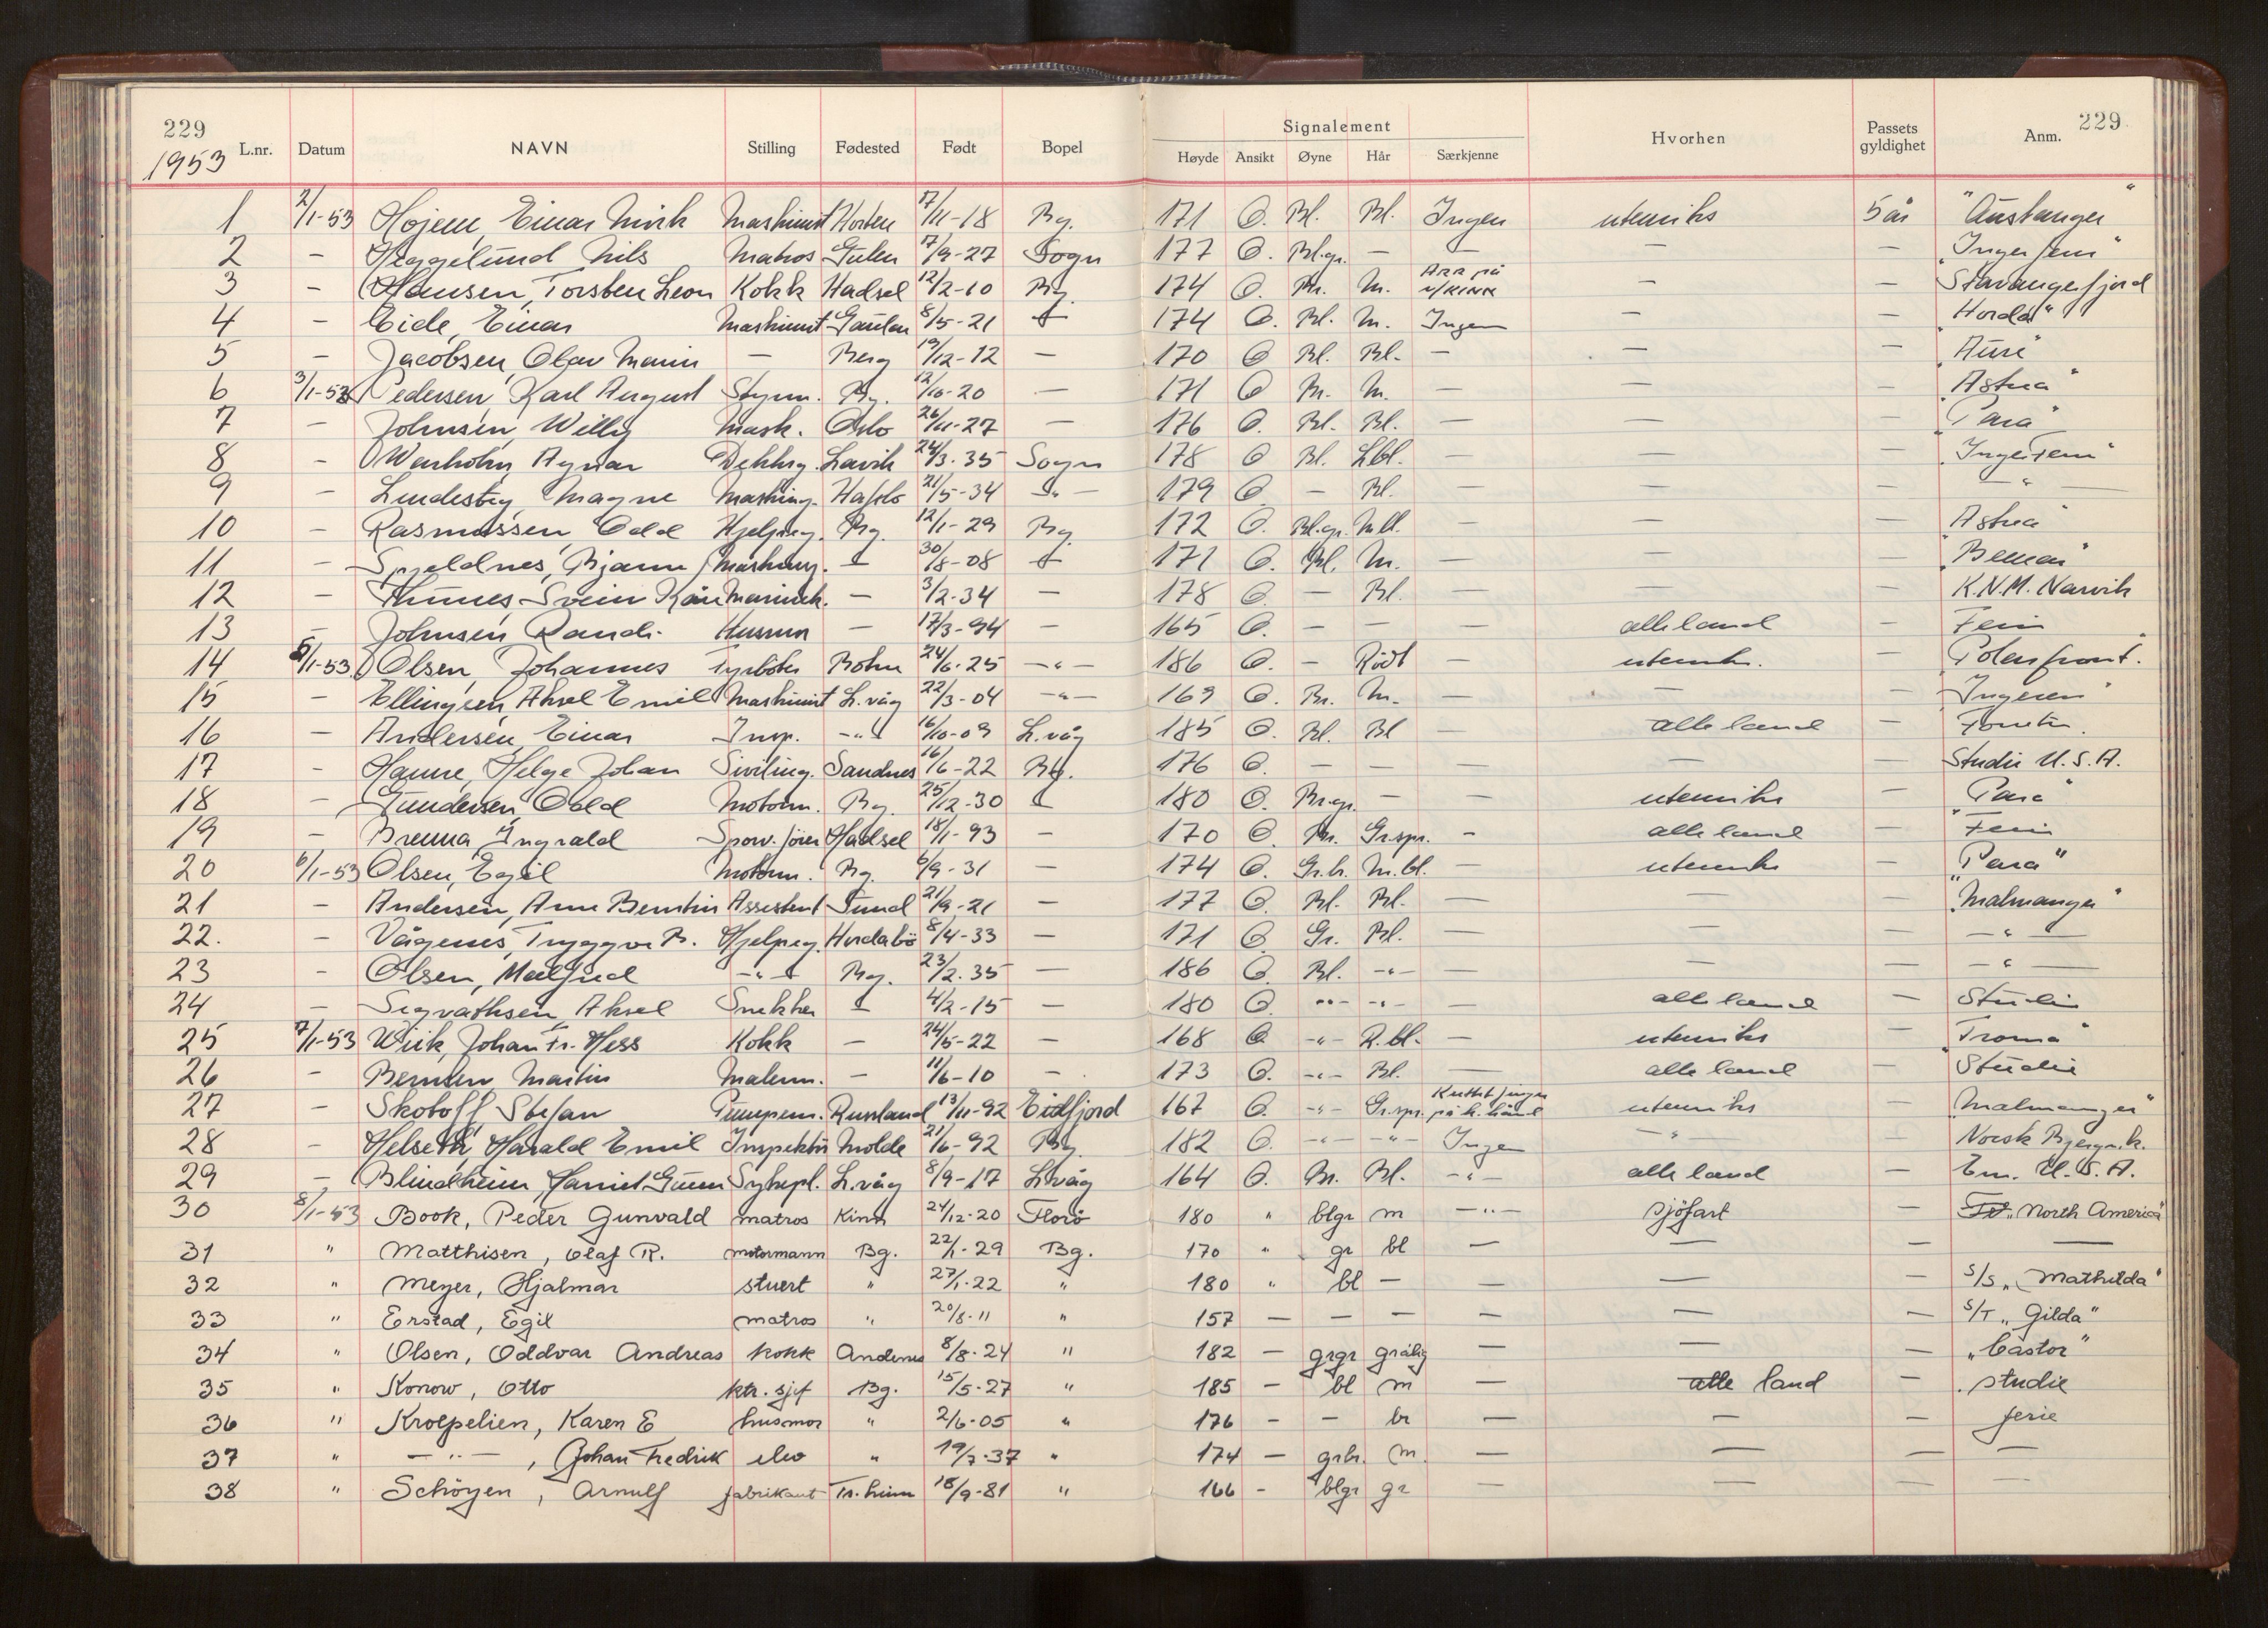 229 229
1953 L.nr. Datum NAVN Stilling Fødested Født Bopel Signalement Høyde Ansikt Øyne Hår Særkjenne Hvorhen Passets gyldighet Anm.
1 2/1-53 Højem, Einar Mork Maskinist Horten 17/11-18 Bg. 171 O. Bl. Bl. Ingen utenriks 5 år "Austanger"
2 - Heggelund Nils Matros Gulen 17/9-27 Sogn 177 O. Bl.gr. - - - - "Ingerfem"
3 - Hansen, Torsten Leon Kokk Hadsel 12/2-10 Bg. 174 O. Br. M. ARR på v/KINN - - Stavangerfjord
4 - Eide, Einar Maskinist Gaular 8/5-21 - 174 O. Bl. M. Ingen - - "Horda"
5 - Jacobsen, Olav - Berg 19/12-12 - 170 O Bl. Bl. - - - "Auri"
6 3/1-53 Pedersen, Karl August Styrm. Bg. 12/10-20 - 171 O Br. M. - - - "Astrea"
7 - Johnsen, Willy Mask. Oslo 26/11-27 - 176 O. Bl. Bl. - - - "Para"
8 - Warholm, Agnar Dekksg. Lavik 24/3-35 Sogn 178 O Bl. Lbl. - - - "Ingerfem"
9 - Lindesteg, Magne Hafslo 21/5-34 -"- 179 O - Bl. - - - -"-
10 - Rasmussen, Odd Hjelpeg. Bg. 12/1-29 Bg. 172 O. Bl.gr. M.bl. - - - "Astrea"
11 - Spjeldnes, Bjarne - 30/8-08 - 171 O. Bl. M. - - -
12 - Thunes, Svein Kåre Marinek. - 3/2-34 - 178 O. - Bl. - - - K.N.M. Narvik
13 - Johnsen, Randi Husmor - 17/3-94 - 165 O. - - - alle land - Ferie
14 5/1-53 Olsen, Johannes Fyrbøter 24/6-25 -"- 186 O. - Rødt - utenriks. - "Polarfront".
15 - Ellingsen, Aksel Emil Maskinist L.våg 22/3-04 -"- 169 O. Br. M. - - - "Ingeren"
16 - Andersen, Einar Insp. -"- 16/10-09 L.våg 185 O. Bl. Bl - alle land -
17 - Hanne, Helge Johan Siviling. Sandnes 16/6-22 Bg. 176 O. - - - - - Studie U.S.A.
18 - Gundersen, Odd Motorm. Bg. 25/12-30 - 180 O. Br.gr. - - utenriks - "Para"
19 - Brenna, Ingvald Sporv.fører Hadsel 18/1-93 - 170 O. Br. Gr.spr. - alle land - Ferie
20 6/1-53 Olsen, Egil Motorm. Bg. 6/9-31 - 174 O. Gr.br. M.bl. - utenriks - "Para"
21 - Andersen, Arne Berntin Assistent Sund 21/9-21 - 177 O. Bl. Bl. - - - "Malmanger"
22. - Vågenes, Tryggve B. Hjelpeg. Herdabö 8/4-33 - 171 O. Gr. Bl. - - - -"-
23 - Olsen, Malfred -"- Bg. 23/2-35 - 186 O. Bl. -"- - - - -"-
24 - Sigvathsen, Aksel Snekker - 4/2-15 - 180 O. -"- -"- - alle land - Studie
25 7/1-53 Wiik, Johan Fr. Hess Kokk - 24/5-22 - 168 O. -"- R.bl. - utenriks - "Troma"
26 - Berntsen, Martin Malerm. - 11/6-10 - 173 O. -"- Bl. - alle land - Studie
27 - Skoboff Stefan Pumpem. Russland 13/11-92 Eidfjord 167 O. -"- Gr.spr. Kuttet finger på h. hånd utenriks - "Malmanger"
28 - Helseth, Harald Emil Inspektör Molde 21/6-92 Bg. 182 O. -"- -"- Ingen -"- - Norsk Bjergn.k.
29 - Blindheim, Harriet Gunn Sykepl. L.våg 8/9-17 L.våg 164 O. Br. Bl. -"- alle land - Em. U.S.A.
30 8/1-53 Book, Peder Gunvald matros Kinn 24/12-20 Florø 180 " blgr m -"- sjöfart - "North America"
31 " Matthisen, Olaf R. motormann Bg. 22/1-29 Bg. 170 " gr bl - - - -
32 " Meyer, Hjalmar stuert " 27/1-22 " 180 " bl - - - - S/S "Mathilda"
33 " Erstad, Egil matros " 20/8-11 " 157 - - - - - - S/T "Gilda"
34 " Olsen, Oddvar Andreas kokk Andenes 8/8-24 " 182 - grgr grålig - - - "Castor"
35 " Konow, Otto ktr.sjef Bg. 15/5-27 " 185 - bl m - alle land - studie
36 " Kroepelien, Karen E husmor " 2/6-05 " 176 - - br - - - ferie
37 " -"-, Johan Fredrik elev " 19/7-37 " 174 - grbr. m. - - - -
38 " Schöyen, Arnulf fabrikant Tr.heim 18/9-81 " 166 - blgr gr - - - -